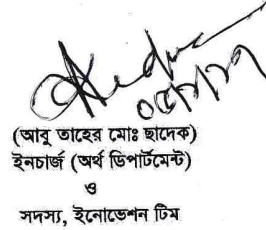 (আবু তাহের মোঃ ছাদেক)
ইনচার্জ (অর্থ ডিপার্টমেন্ট)
ও
সদস্য, ইনোভেশন টিম